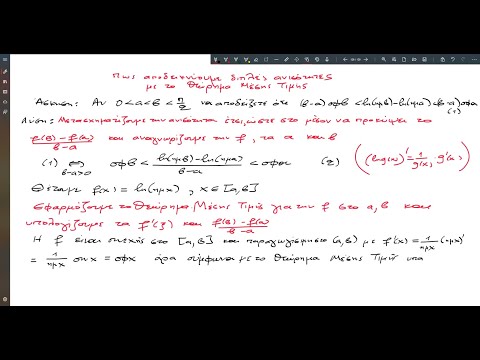 Πως αποδεικνύουμε διπλές ανισότητες
με το Θεώρημα Μέσης Τιμής
Άσκηση: Αν 0<α<β<π/2 να αποδείξετε ότι (β-α)σφβ<ln(ημβ)-ln(ημα)<(β-α)σφα (1)
Λύση: Μετασχηματίζουμε την ανισότητα έτσι, ώστε στο μέσον να προκύψει το
(f(β)-f(α))/(β-α) και αναγνωρίζουμε την f, τα α και β
(1) ⟺ σφβ < (ln(ημβ)-ln(ημα))/(β-α) < σφα (2)
β-α>0
((log(x))' = 1/g(x) · g'(x))
Θέτουμε f(x) = ln(ημx), x∈[α,β]
Εφαρμόζουμε το Θεώρημα Μέσης Τιμής για την f στο α,β και
υπολογίζουμε τα f'(ξ) και (f(β)-f(α))/(β-α)
Η f είναι συνεχής στο [α,β] και παραγωγίσιμη στο (α,β) με f'(x) = 1/ημx (ημx)'
= 1/ημx συνx = σφx άρα σύμφωνα με το Θεώρημα Μέσης Τιμή υπα